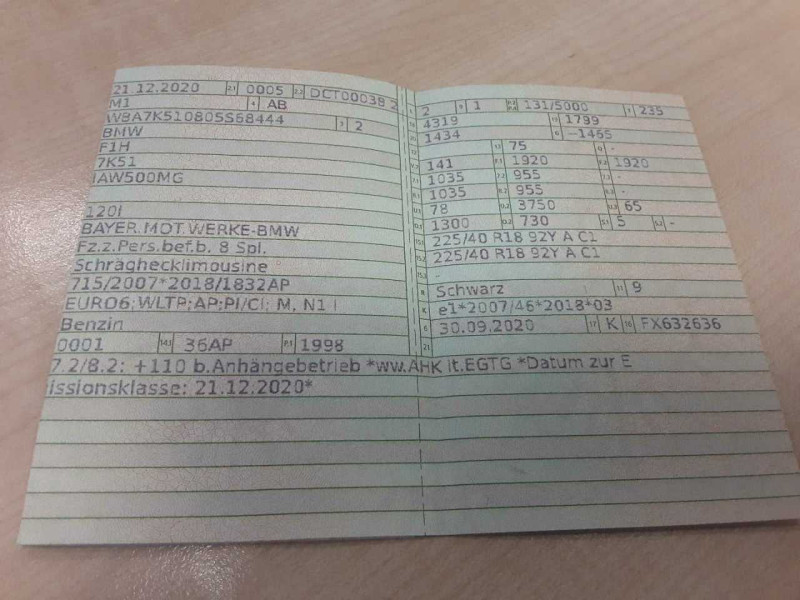 21 12.2020 2.1 0005 2.2 DCT00038 2
M1 4 AB
WBA7K510805S68444 3 2
BMW
F1H
7K51
IAW500MG
120i
BAYER.MOT.WERKE-BMW
Fz.z.Pers.bef.b. 8 Spl.
Schräghecklimousine
715/2007*2018/1832AP
EURO6;WLTP;AP;PI/CI; M, N1 I
Benzin
0001 14.1 36AP P.1 1998
2 9 1 131/5000 T 235
4319 1799
1434 –1465
75 -
141 1920 1920
1035 955 -
1035 955 -
78 3750 65
1300 730 5 -
225/40 R18 92Y A C1
225/40 R18 92Y A C1
-
Schwarz 11 9
K e1*2007/46*2018*03
6 30.09.2020 17 K 16 FX632636
21
7.2/8.2: +110 b.Anhängebetrieb *ww.AHK lt.EGTG *Datum zur E
issionsklasse: 21.12.2020*